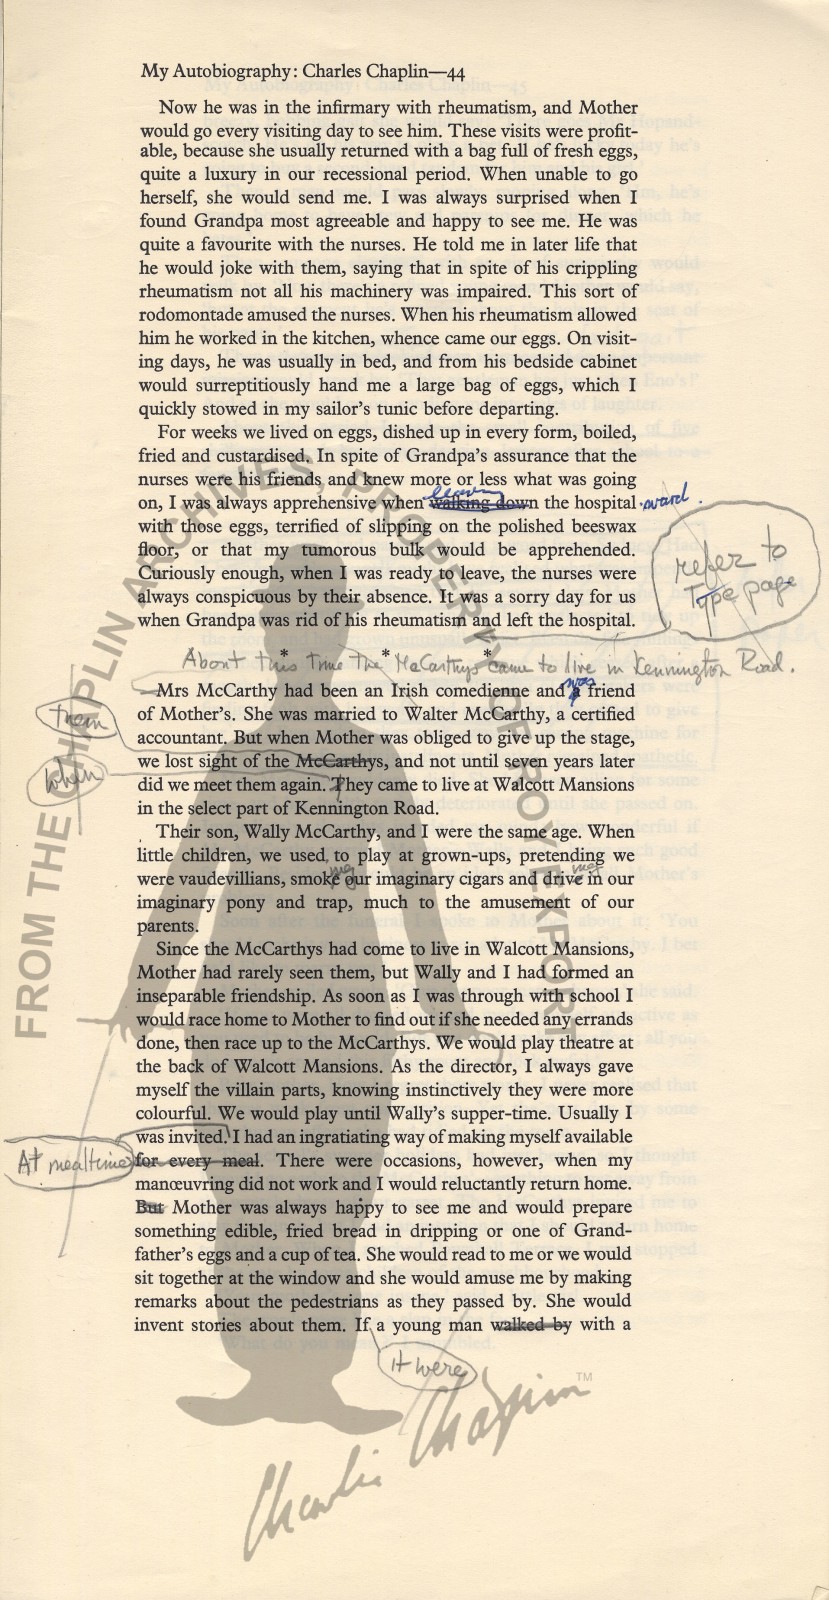 My Autobiography: Charles Chaplin—44
Now he was in the infirmary with rheumatism, and Mother
would go every visiting day to see him. These visits were profit-
able, because she usually returned with a bag full of fresh eggs,
quite a luxury in our recessional period. When unable to go
herself, she would send me. I was always surprised when I
found Grandpa most agreeable and happy to see me. He was
quite a favourite with the nurses. He told me in later life that
he would joke with them, saying that in spite of his crippling
rheumatism not all his machinery was impaired. This sort of
rodomontade amused the nurses. When his rheumatism allowed
him he worked in the kitchen, whence came our eggs. On visit-
ing days, he was usually in bed, and from his bedside cabinet
would surreptitiously hand me a large bag of eggs, which I
quickly stowed in my sailor's tunic before departing.
For weeks we lived on eggs, dished up in every form, boiled,
fried and custardised. In spite of Grandpa's assurance that the
nurses were his friends and knew more or less what was going
leaving
on, I was always apprehensive when walking down the hospital ward.
with those eggs, terrified of slipping on the polished beeswax
floor, or that my tumorous bulk would be apprehended.
Curiously enough, when I was ready to leave, the nurses were
always conspicuous by their absence. It was a sorry day for us
when Grandpa was rid of his rheumatism and left the hospital.
refer to
Type page
* * *
About this time the McCarthys came to live in Kennington Road.
was
Mrs McCarthy had been an Irish comedienne and a friend
of Mother's. She was married to Walter McCarthy, a certified
them
accountant. But when Mother was obliged to give up the stage,
we lost sight of the McCarthys, and not until seven years later
when
did we meet them again. They came to live at Walcott Mansions
in the select part of Kennington Road.
Their son, Wally McCarthy, and I were the same age. When
little children, we used to play at grown-ups, pretending we
ing ing
were vaudevillians, smoke our imaginary cigars and drive in our
imaginary pony and trap, much to the amusement of our
parents.
Since the McCarthys had come to live in Walcott Mansions,
Mother had rarely seen them, but Wally and I had formed an
inseparable friendship. As soon as I was through with school I
would race home to Mother to find out if she needed any errands
done, then race up to the McCarthys. We would play theatre at
the back of Walcott Mansions. As the director, I always gave
myself the villain parts, knowing instinctively they were more
colourful. We would play until Wally's supper-time. Usually I
was invited. I had an ingratiating way of making myself available
At mealtime
for every meal. There were occasions, however, when my
manœuvring did not work and I would reluctantly return home.
But Mother was always happy to see me and would prepare
something edible, fried bread in dripping or one of Grand-
father's eggs and a cup of tea. She would read to me or we would
sit together at the window and she would amuse me by making
remarks about the pedestrians as they passed by. She would
invent stories about them. If a young man walked by with a
it were
FROM THE CHAPLIN ARCHIVES, PROPERTY OF ROY EXPORT
Charlie Chaplin™